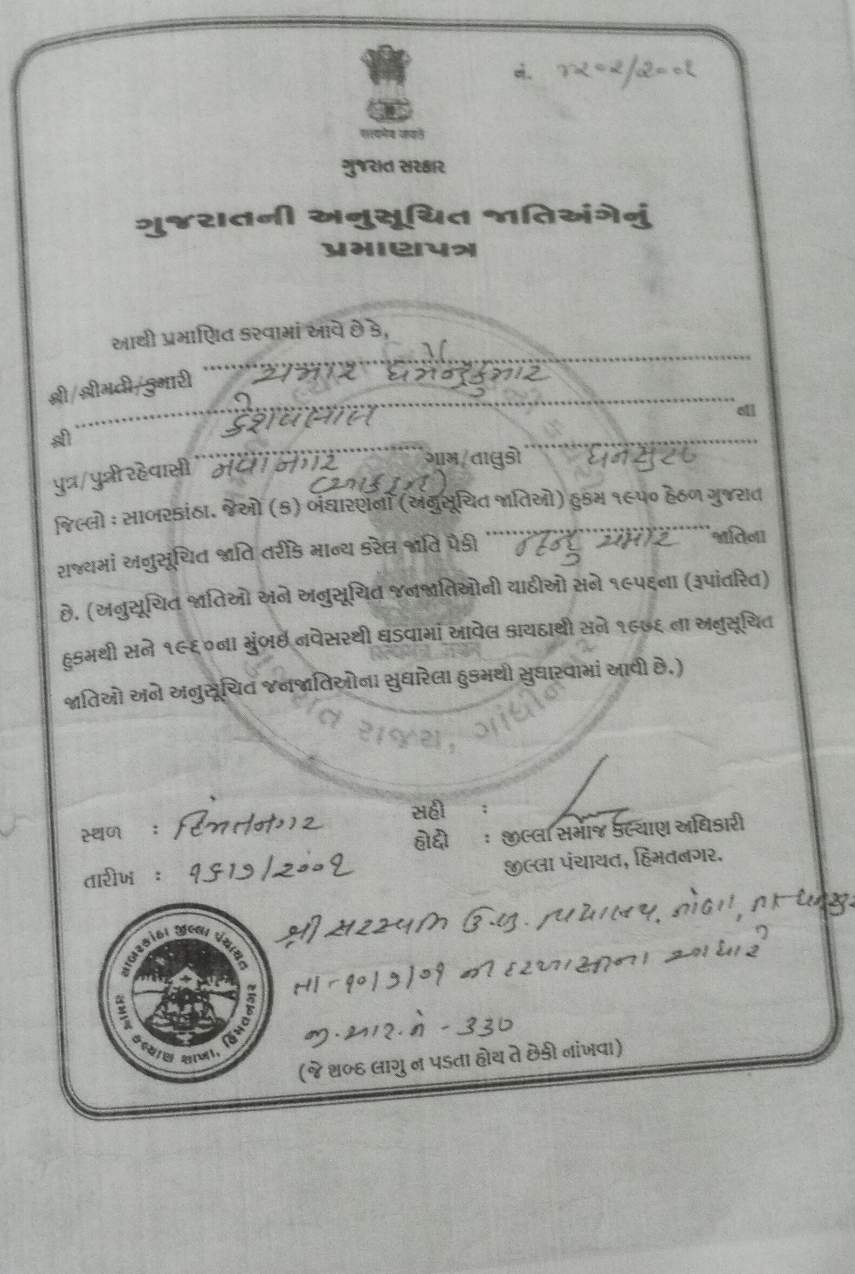 નં. ૪૨૦૨/૨૦૦૧
सत्यमेव जयते
ગુજરાત સરકાર
ગુજરાતની અનુસૂચિત જાતિઅંગેનું
પ્રમાણપત્ર
આથી પ્રમાણિત કરવામાં આવે છે કે,
શ્રી/શ્રીમતી/કુમારી ચમાર ધર્મેન્દ્રકુમાર
શ્રી કેશવલાલ ના
પુત્ર/પુત્રી રહેવાસી નવાનગર ગામ/તાલુકો ધનસુરા
(આકરૂન્દ)
જિલ્લો : સાબરકાંઠા. જેઓ (ક) બંધારણના (અનુસૂચિત જાતિઓ) હુકમ ૧૯૫૦ હેઠળ ગુજરાત
રાજ્યમાં અનુસૂચિત જાતિ તરીકે માન્ય કરેલ જાતિ પૈકી હિન્દુ ચમાર જાતિના
છે. (અનુસૂચિત જાતિઓ અને અનુસૂચિત જનજાતિઓની યાદીઓ સને ૧૯૫૬ના (રૂપાંતરિત)
હુકમથી સને ૧૯૬૦ના મુંબઇ નવેસરથી ઘડવામાં આવેલ કાયદાથી સને ૧૯૭૬ ના અનુસૂચિત
જાતિઓ અને અનુસૂચિત જનજાતિઓના સુધારેલા હુકમથી સુધારવામાં આવી છે.)
ગુજરાત રાજ્ય, ગાંધીનગર
સ્થળ : હિંમતનગર
સહી :
તારીખ : ૧૬/૭/૨૦૦૧
હોદ્દો : જીલ્લા સમાજ કલ્યાણ અધિકારી
જીલ્લા પંચાયત, હિંમતનગર.
સાબરકાંઠા જીલ્લા પંચાયત
સમાજ કલ્યાણ શાખા, હિંમતનગર
શ્રી સરસ્વતિ ઉ.બુ. વિદ્યાલય,
તા-૧૦/૭/૦૧ ની દરખાસ્તના આધારે
જી.આર.નં - ૩૩૦
(જે શબ્દ લાગુ ન પડતા હોય તે છેકી નાંખવા)